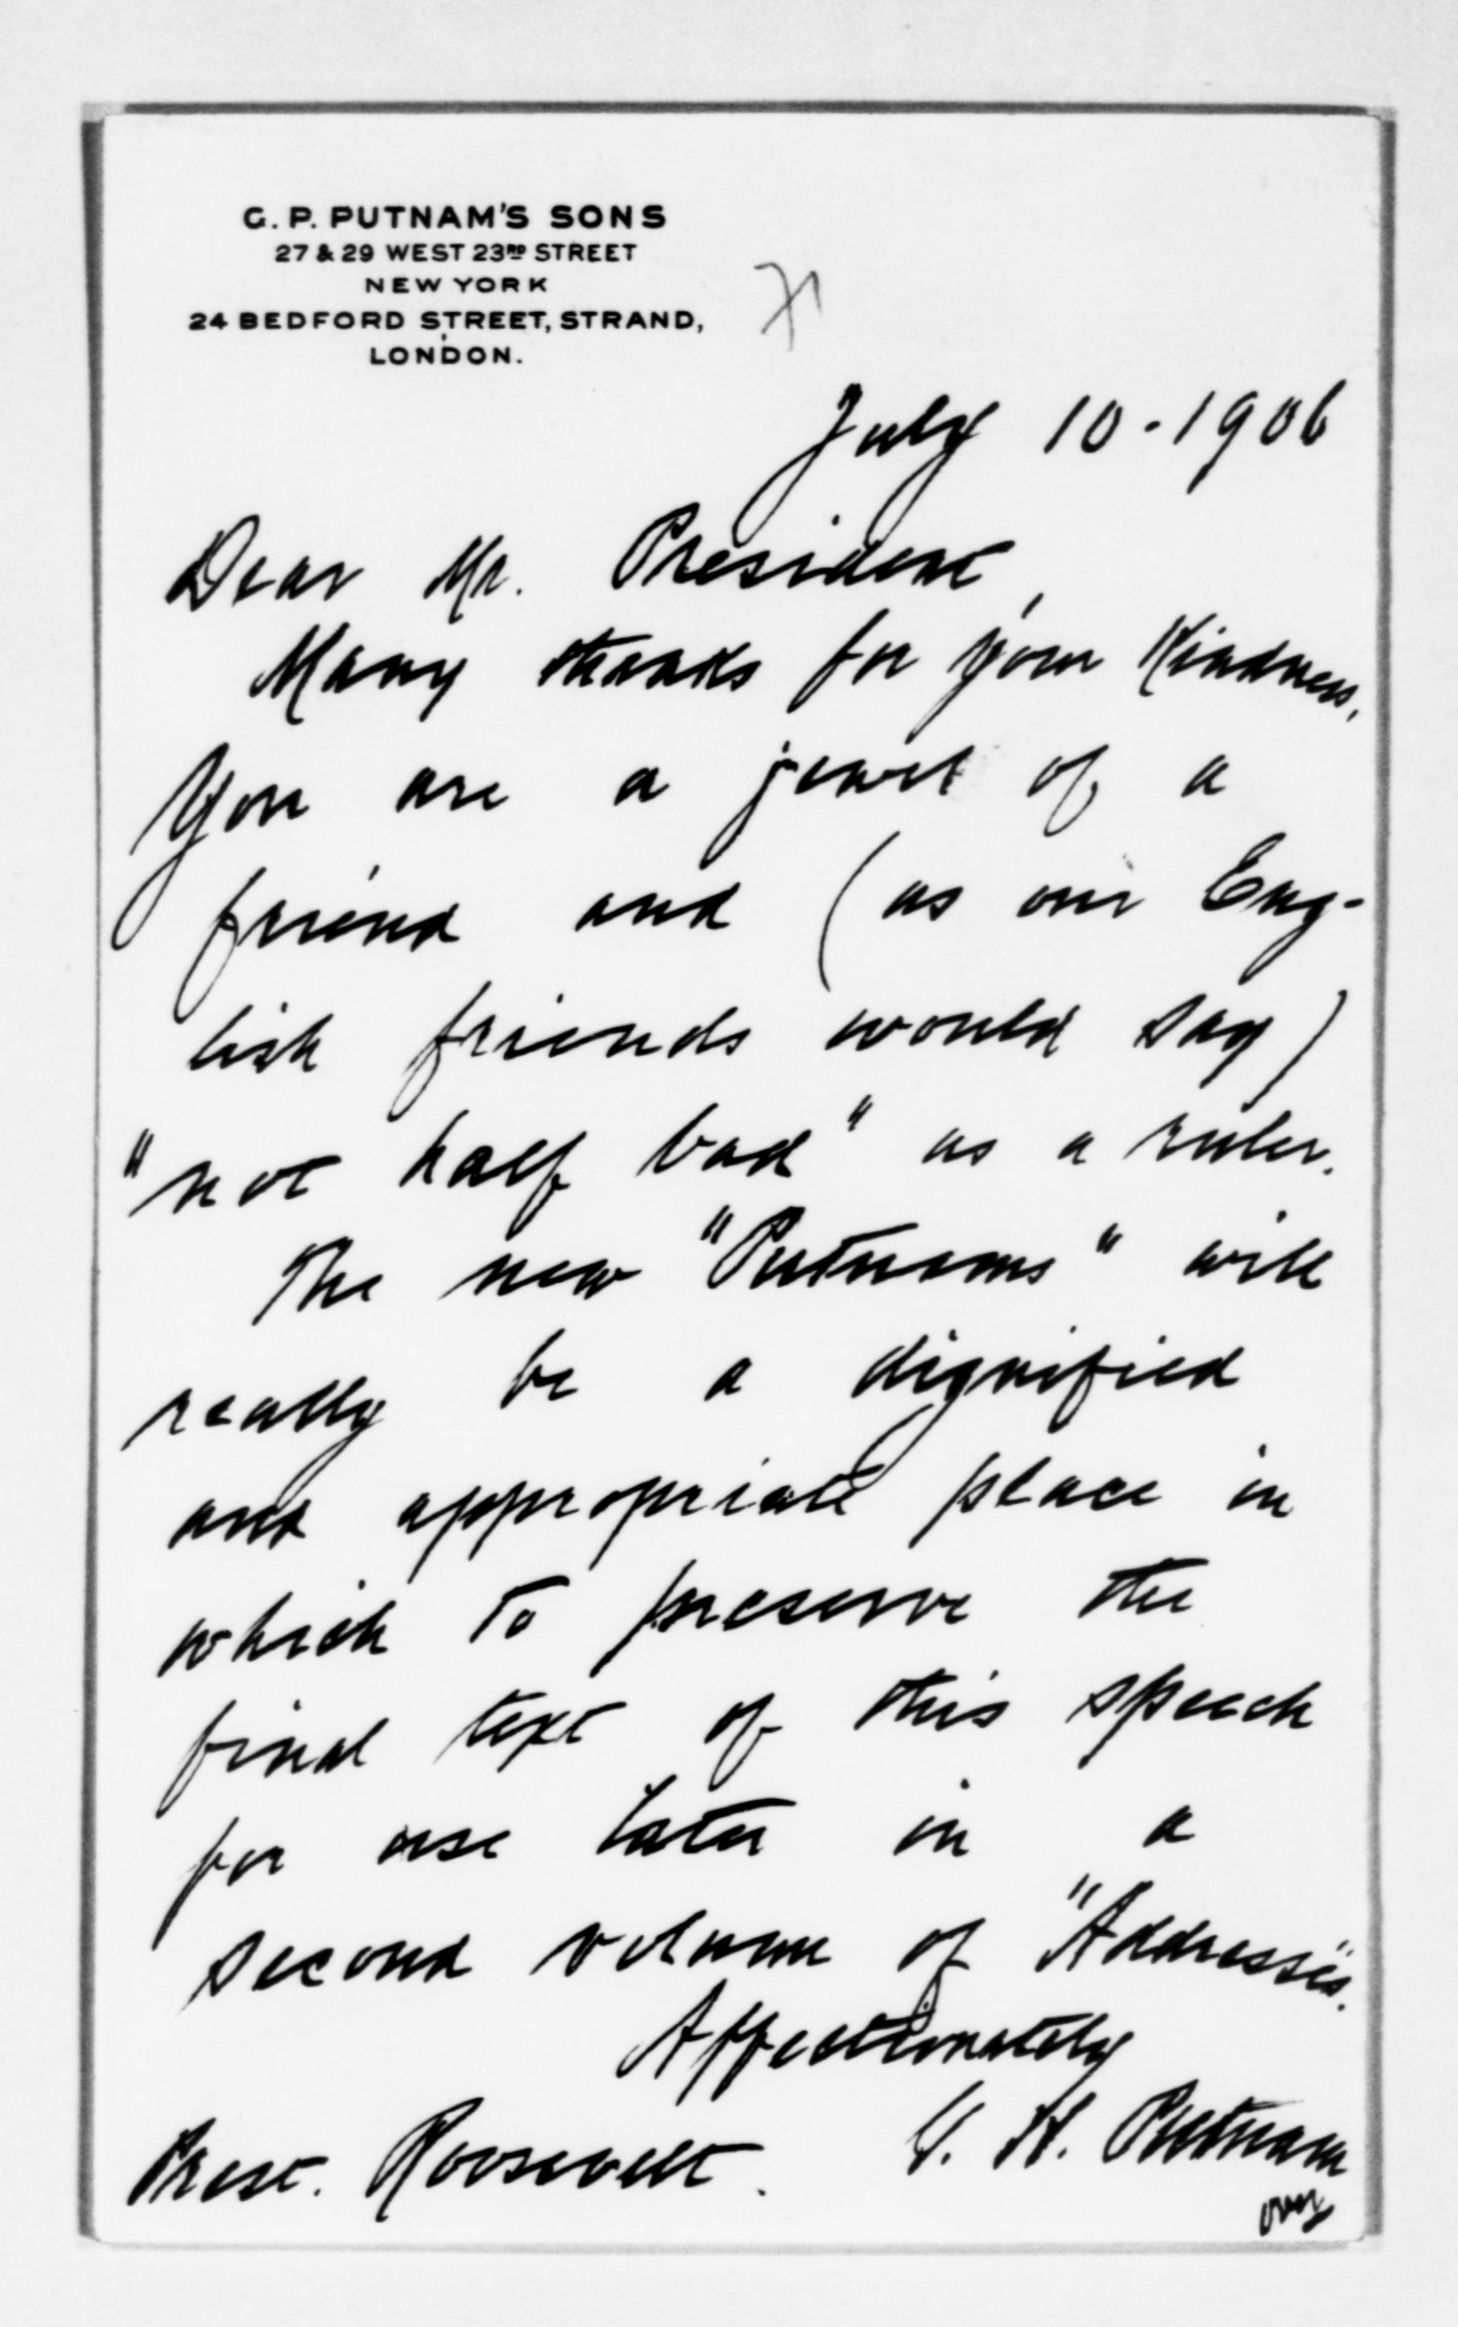 G. P. PUTNAM'S SONS
27 & 29 WEST 23RD STREET
NEW YORK
24 BEDFORD STREET, STRAND,
LONDON.
July 10 - 1906
Dear Mr. President,
Many thanks for your Kindness,
You are a jewel of a
friend and (as our Eng-
lish friends would say)
"not half bad" as a ruler.
The new "Putnams" will
really be a dignified
and appropriate place in
which to preserve the
final text of this speech
for use later in a
second volume of "Addresses".
Affectionately
G. H. Putnam
Prest. Roosevelt.
over